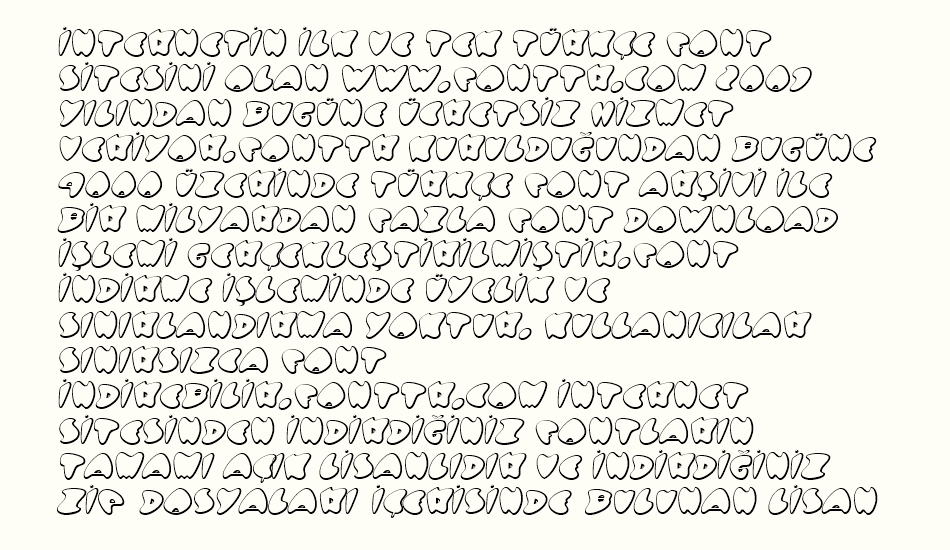 İNTERNETİN İLK VE TEK TÜRKÇE FONT
SİTESİNİ OLAN WWW.FONTTR.COM 2009
YILINDAN BUGÜNE ÜCRETSİZ HİZMET
VERİYOR.FONTTR KURULDUĞUNDAN BUGÜNE
9000 ÜZERİNDE TÜRKÇE FONT ARŞİVİ İLE
BİR MİLYARDAN FAZLA FONT DOWNLOAD
İŞLEMİ GERÇEKLEŞTİRİLMİŞTİR.FONT
İNDİRME İŞLEMİNDE ÜYELİK VE
SINIRLANDIRMA YOKTUR. KULLANICILAR
SINIRSIZCA FONT
İNDİREBİLİR.FONTTR.COM İNTERNET
SİTESİNDEN İNDİRDİĞİNİZ FONTLARIN
TAMAMI AÇIK LİSANLIDIR VE İNDİRDİĞİNİZ
ZİP DOSYALARI İÇERİSİNDE BULUNAN LİSAN